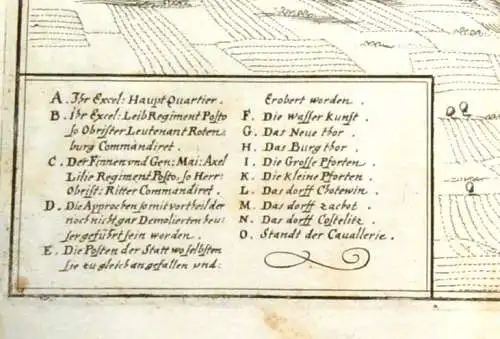 A. Ihr Excel: Haupt Quartier.
B. Ihr Excel: Leib Regiment Posto
so Obrister Leutenant Roten-
burg Commandiret.
C. Der Finnen vnd Gen: Mai: Axel
Lilie Regiment Posto: so Herr:
Obrist: Ritter Commandiret.
D. Die Approchen so mit vortheil der
noch nicht gar Demolierten heu-
ser geführt sein worden.
E. Die Posten der Statt wo selbsten
sie zu gleich angefallen und:
Erobert worden.
F. Die Wasser Kunst.
G. Das Neue thor.
H. Das Burg thor.
I. Die Grosse Pforten.
K. Die Kleine Pforten.
L. Das dorff Chotewin.
M. Das dorff Zachot.
N. Das dorff Costelitz.
O. Standt der Cauallerie.